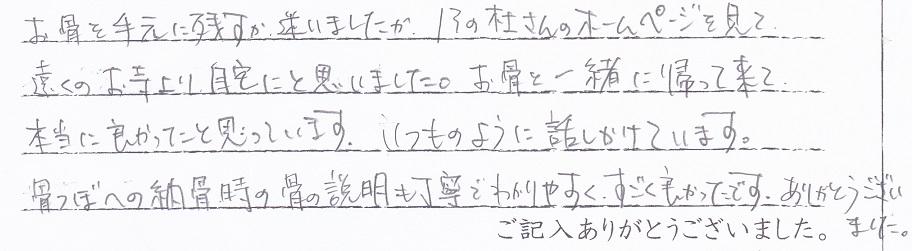 お骨を手元に残すか迷いましたが、13の杜さんのホームページを見て
遠くのお寺より自宅にと思いました。お骨と一緒に帰って来て
本当に良かったと思っています。いつものように話しかけています。
骨つぼへの納骨時の骨の説明も丁寧でわかりやすく、すごく良かったです。ありがとうござい
ました。
ご記入ありがとうございました。